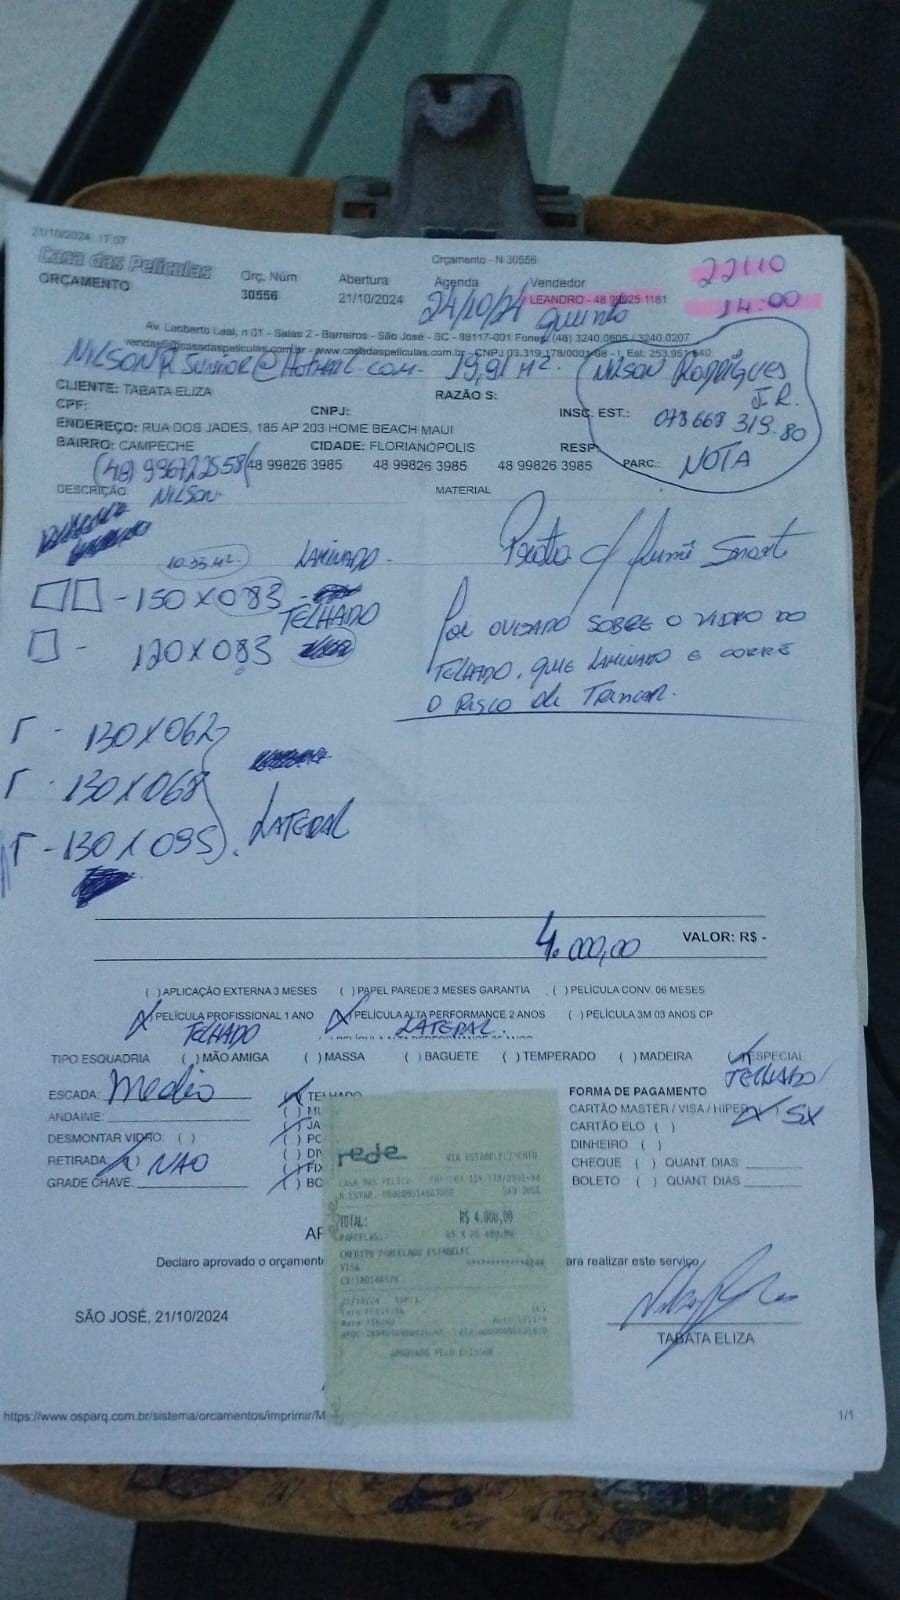 21/10/2024 17:07
Orçamento - N 30556
Casa das Películas
ORÇAMENTO
Orç. Núm
30556
Abertura
21/10/2024
Agenda
24/10/24
Quinta
Vendedor
LEANDRO - 48 99925 1181
22/10
14:00
Av. Leoberto Leal, n 01 - Salas 2 - Barreiros - São José - SC - 88117-001 Fones: (48) 3240.0605 / 3240.0207
vendas5@casadaspeliculas.com.br - www.casadaspeliculas.com.br - CNPJ 03.319.178/0001-98 - I. Est. 253.951.640
NILSON R JUNIOR@HOTMAIL.COM- 19,91 M2.
NILSON RODRIGUES
J.R.
078 668 319.80
NOTA
CLIENTE: TABATA ELIZA
RAZÃO S:
CPF:
CNPJ:
INSC. EST.:
ENDEREÇO: RUA DOS JADES, 185 AP 203 HOME BEACH MAUI
BAIRRO: CAMPECHE
CIDADE: FLORIANÓPOLIS
RESP:
(48) 996722558/ 48 99826 3985 48 99826 3985 48 99826 3985
PARC.:
NILSON
DESCRIÇÃO
MATERIAL
LAMINADO -
Prata c/ fumê Smart
- 150 X 083 -
TELHADO
- 120 X 083
POR OUSADO SOBRE O VIDRO DO
TELHADO, QUE LAMINADO E CORRE
O RISCO de TRINCAR.
- 130 X 062
- 130 X 068
- 130 X 095
LATERAL
4.000,00
VALOR: R$ -
( ) APLICAÇÃO EXTERNA 3 MESES ( ) PAPEL PAREDE 3 MESES GARANTIA ( ) PELÍCULA CONV. 06 MESES
(X) PELÍCULA PROFISSIONAL 1 ANO (X) PELÍCULA ALTA PERFORMANCE 2 ANOS ( ) PELÍCULA 3M 03 ANOS CP
TELHADO
LATERAL.
TIPO ESQUADRIA ( ) MÃO AMIGA ( ) MASSA ( ) BAGUETE ( ) TEMPERADO ( ) MADEIRA (X) ESPECIAL
TELHADO
ESCADA: Medio
ANDAIME:
DESMONTAR VIDRO: ( )
RETIRADA: NÃO
GRADE CHAVE:
TELHADO
FORMA DE PAGAMENTO
CARTÃO MASTER / VISA / HIPER X 5X
CARTÃO ELO ( )
DINHEIRO ( )
CHEQUE ( ) QUANT DIAS:
BOLETO ( ) QUANT DIAS
rede
VIA ESTABELECIMENTO
SÃO JOSÉ
TOTAL: R$ 4.000,00
PARCELAS:
CREDITO PARCELADO ESTABELEC
VISA
APROVADO PELO EMISSOR
Declaro aprovado o orçamento
para realizar este serviço
SÃO JOSÉ, 21/10/2024
TABATA ELIZA
https://www.osparq.com.br/sistema/orcamentos/imprimir/M
1/1